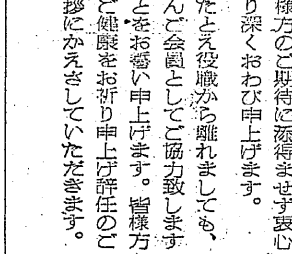 様方のご期待に添得ませず衷心
り深くおわび申上げます。
たとえ役職から離れましても、
んご会員としてご協力致します
とをお誓い申上げます。皆様方
ご健康をお祈り申上げ辞任のご
拶にかえさしていただきます。